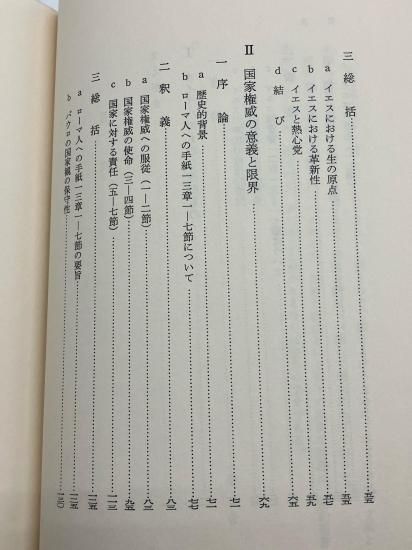 三 総 括……五五
a イエスにおける生の原点……五五
b イエスにおける革新性……五七
c イエスと熱心党……五九
d 結 び……六五
Ⅱ 国家権威の意義と限界……六九
一 序 論……七一
a 歴史的背景……七一
b ローマ人への手紙一三章一―七節について……七七
二 釈 義……八三
a 国家権威への服従(一―二節)……八三
b 国家権威の使命(三―四節)……九五
c 国家に対する責任(五―七節)……一一三
三 総 括……一二五
a ローマ人への手紙一三章一―七節の要旨……一二五
b パウロの国家観の保守性……一三〇